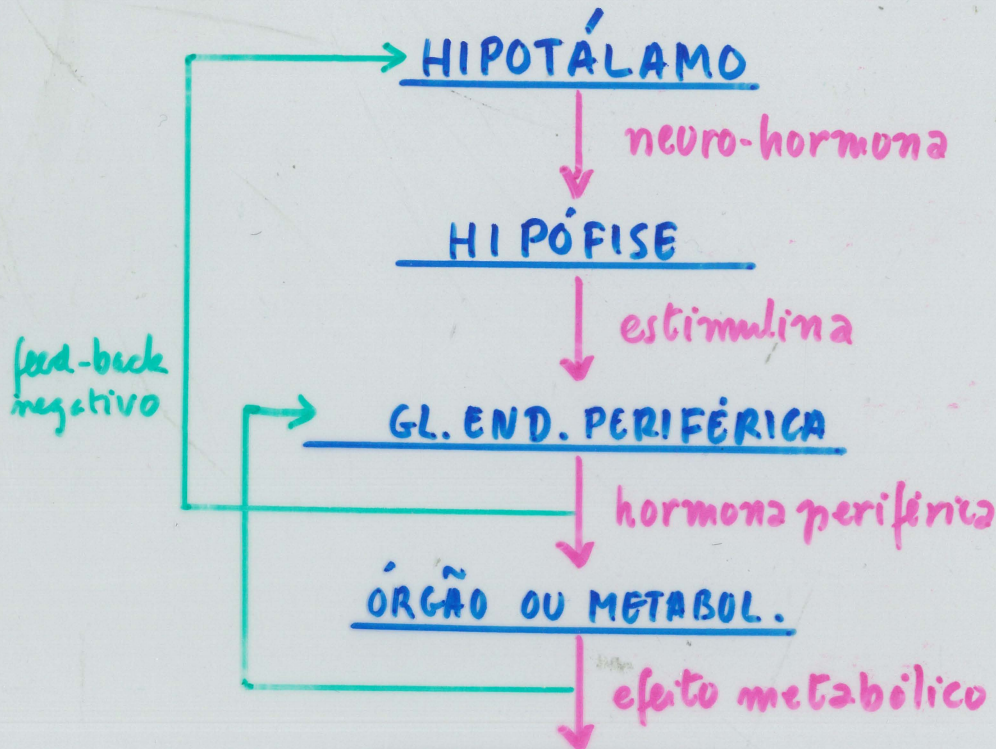 HIPOTÁLAMO
neuro-hormona
HIPÓFISE
estimulina
feed-back
negativo
GL. END. PERIFÉRICA
hormona periférica
ÓRGÃO OU METABOL.
efeito metabólico